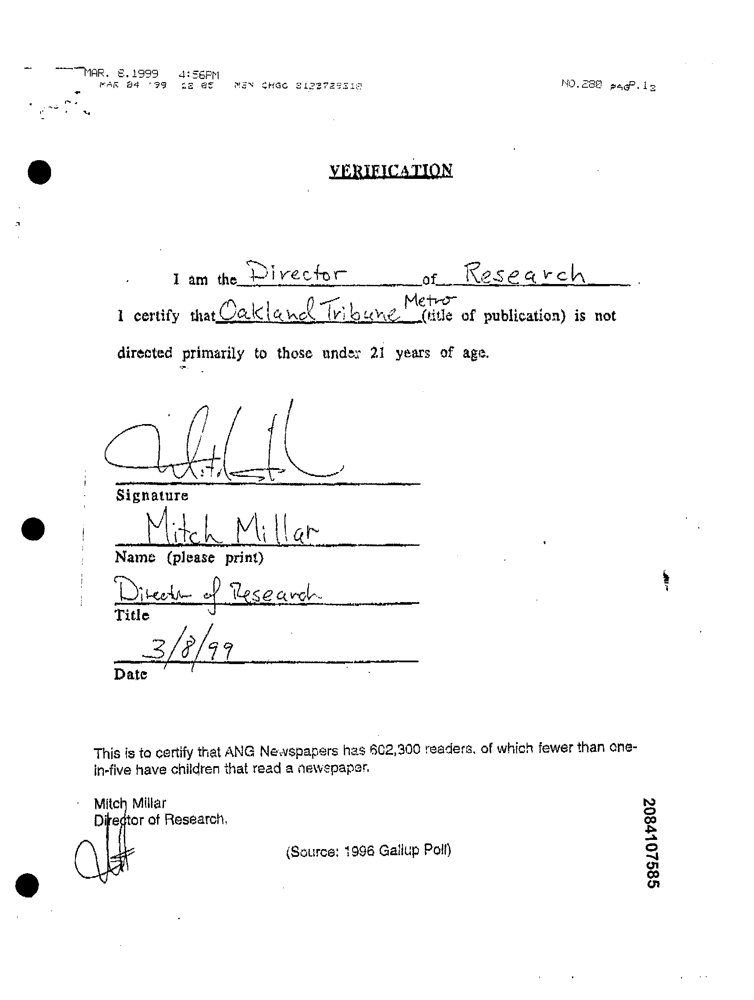 MAR. 8.1999 4:56PM NO.280 P.1
MAR 04 '99
VERIFICATION
I am the Director of Research
I certify that Oakland Tribune Metro (title of publication) is not
directed primarily to those under 21 years of age.
Signature
Mitch Millar
Name (please print)
Director of Research
Title
3/8/99
Date
This is to certify that ANG Newspapers has 602,300 readers, of which fewer than one-
in-five have children that read a newspaper.
Mitch Millar
Director of Research,
(Source: 1996 Gallup Poll)
2084107585